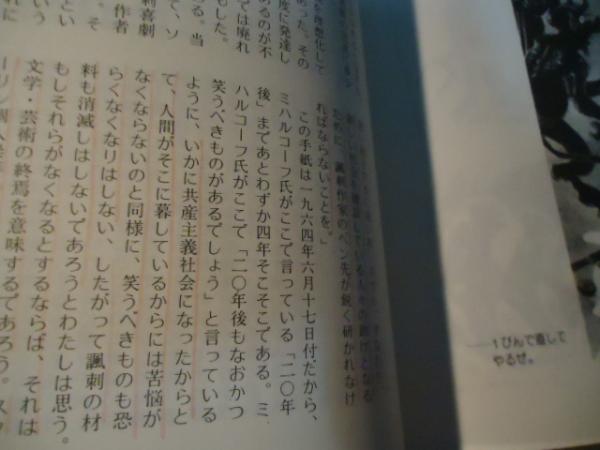 一びんで直して
やるぜ。
ために、諷刺作家のペン先が鋭く研かれなけ
ればならないことを。」
この手紙は一九六四年六月十七日付だから、
ミハルコーフ氏がここで言っている「二〇年
後」まであとわずか四年そこそこである。ミ
ハルコーフ氏がここで「二〇年後もなおかつ
笑うべきものがあるでしょう」と言っている
ように、いかに共産主義社会になったからと
て、人間がそこに暮しているからには苦悩が
なくならないのと同様に、笑うべきものも恐
らくなくなりはしない、したがって諷刺の材
料も消滅しはしないであろうとわたしは思う。
もしそれらがなくなるとするならば、それは
文学・芸術の終焉を意味するであろう。スタ
ーリン
を理想化して
あった。その
度に発達し
あるのが不
ては廃れ
もした。
る。当
刺喜劇
て、ソ
作者
。そ
とい
いう
れに